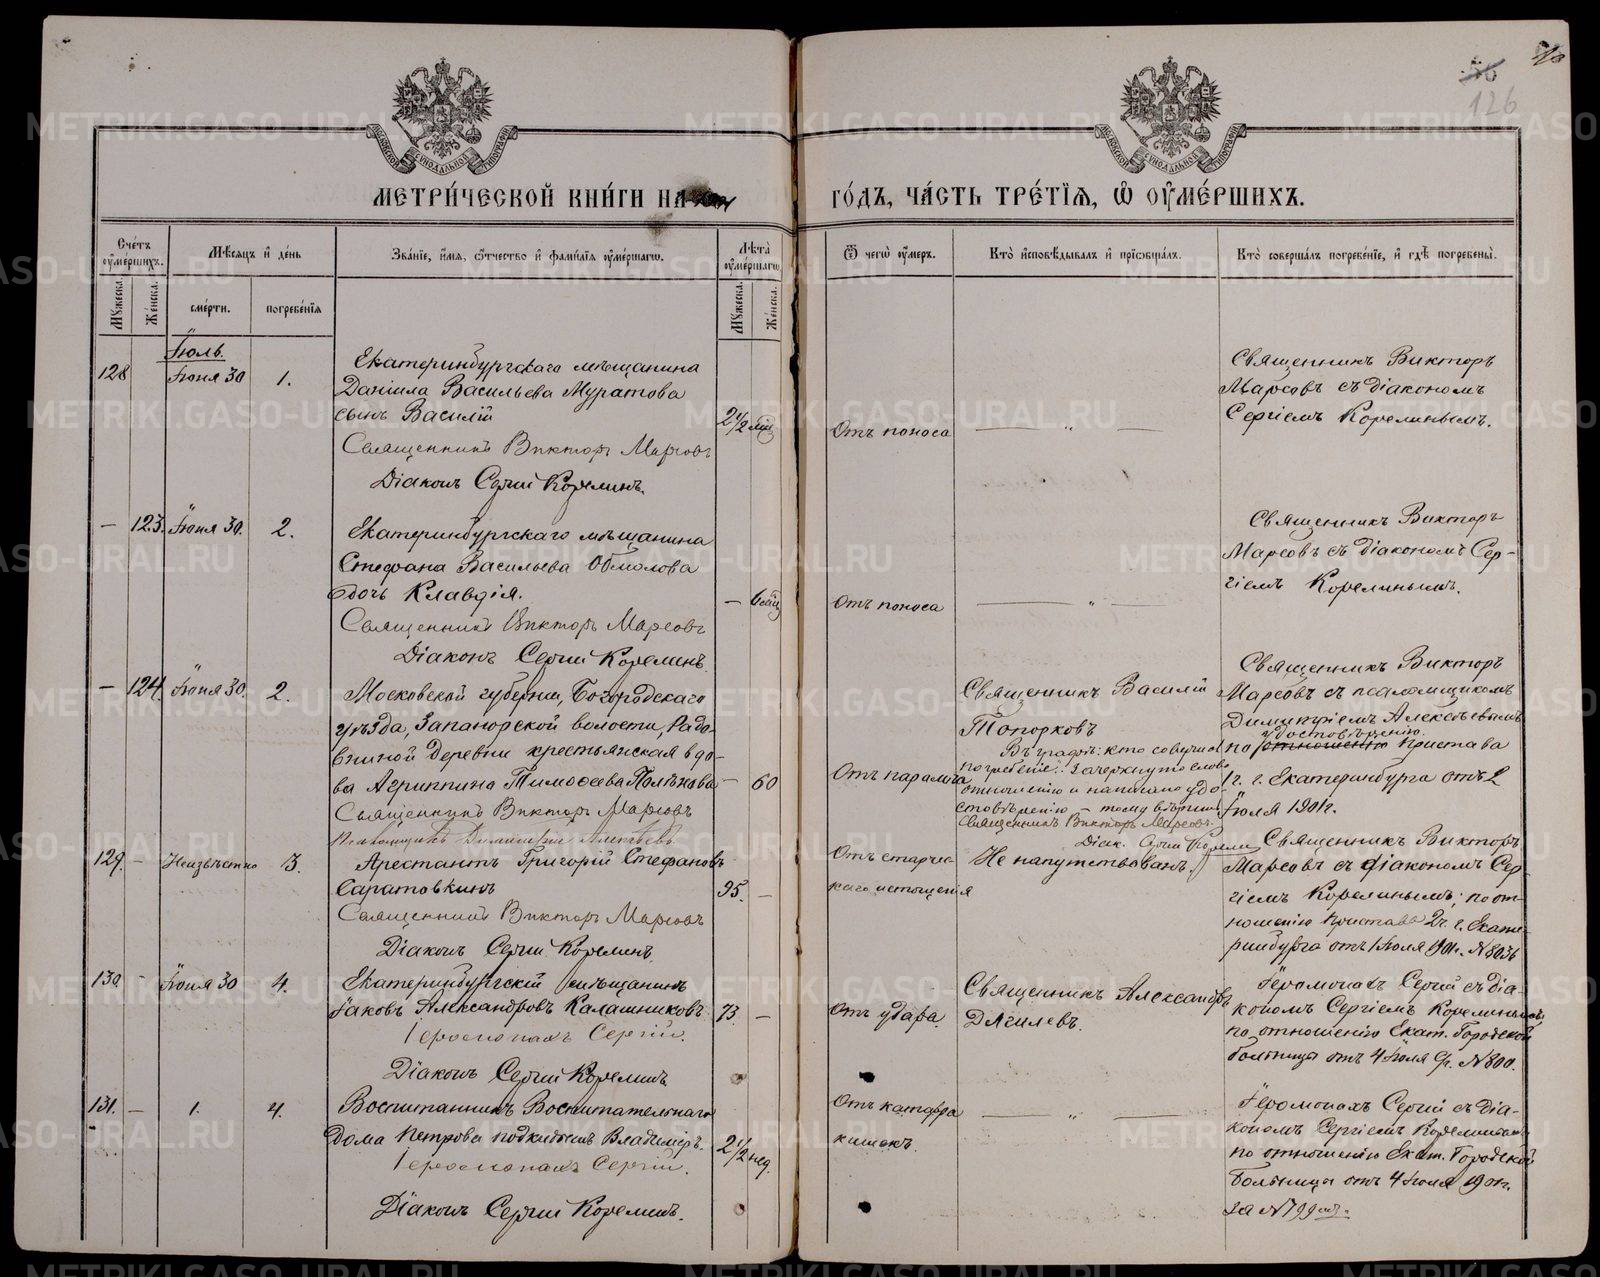 126
МЕТРИ́ЧЕСКОЙ КНИ́ГИ НА
ГО́ДЪ, ЧА́СТЬ ТРЕ́ТЇѦ, Ѡ҆ ОУ҆МЕ́РШИХЪ.
Сче́тъ оу҆ме́ршихъ.
Мꙋжеска.
Же́нска.
Мѣ́сѧцъ и҆ де́нь
сме́рти.
погребе́нїѧ
Зва́нїе, и҆́мѧ, ѻ҆́тчество и҆ фами́лїѧ оу҆ме́ршагѡ.
Лѣ́та оу҆ме́ршагѡ.
Мꙋжеска.
Же́нска.
Ѿ чегѡ̀ оу҆́меръ.
Кто̀ и҆сповѣ́дывалъ и҆ прїѡбща́лъ.
Кто̀ соверша́лъ погребе́нїе, и҆ гдѣ̀ погребены̀.
Іюль.
128
Іюня 30
1.
Екатеринбургскаго мѣщанина
Даніила Васильева Муратова
сынъ Василій
Священникъ Викторъ Марсовъ
Діаконъ Сергій Корелинъ.
2½ мѣс
Отъ поноса
Священникъ Викторъ
Марсовъ съ діакономъ
Сергіемъ Корелинымъ.
— 123.
Іюня 30.
2.
Екатеринбургскаго мѣщанина
Стефана Васильева Обмолова
дочь Клавдія.
Священникъ Викторъ Марсовъ
Діаконъ Сергій Корелинъ
— 6 мѣс
Отъ поноса
Священникъ Викторъ
Марсовъ съ діакономъ Сер-
гіемъ Корелинымъ.
— 124.
Іюня 30.
2.
Московской губерніи, Богородскаго
уѣзда, Запонорской волости,
деревни крестьянская вдо-
ва Агриппина Тимоѳеева
Священникъ Викторъ Марсовъ
Псаломщикъ Димитрій Алексѣевъ
— 60
Отъ паралича
Священникъ Василій
Топорковъ
Въ графѣ: кто совершал
погребеніе: зачеркнуто слово
отношенію и написано удо-
стовѣренію —
Священникъ Викторъ Марсовъ.
Діак. Сергій Корелинъ
Священникъ Викторъ
Марсовъ съ псаломщикомъ
Димитріемъ Алексѣевымъ
удостовѣренію
по отношенію пристава
1 ч. г. Екатеринбурга отъ 2
Іюля 1901 г.
129. —
Неизвѣстно
3.
Арестантъ Григорій Стефановъ
Саратовкинъ
Священникъ Викторъ Марсовъ
Діаконъ Сергій Корелинъ.
95. —
Отъ старче-
скаго истощенія
Не напутствованъ.
Священникъ Викторъ
Марсовъ съ діакономъ Сер-
гіемъ Корелинымъ; по от-
ношенію пристава 2 ч. г. Екате-
ринбурга отъ 1 Іюля 1901 г. № 8036
130. —
Іюня 30
4.
Екатеринбургскій мѣщанинъ
Іаковъ Александровъ Калашниковъ.
Іеромонахъ Сергій.
Діаконъ Сергій Корелинъ.
73. —
Отъ удара.
Священникъ Александръ
Дягилевъ.
Іеромонахъ Сергій съ діа-
кономъ Сергіемъ Корелинымъ
по отношенію Екат. Городской
больницы отъ 4 Іюля № 800.
131. —
1.
4.
Воспитанникъ Воспитательнаго
дома Петрова подкидышъ Владиміръ.
Іеромонахъ Сергій.
Діаконъ Сергій Корелинъ.
2½ нед.
Отъ катарра
кишекъ.
Іеромонахъ Сергій съ діа-
кономъ Сергіемъ Корелинымъ
по отношенію Екат. Городской
Больницы отъ 4 Іюля 1901 г.
за № 799